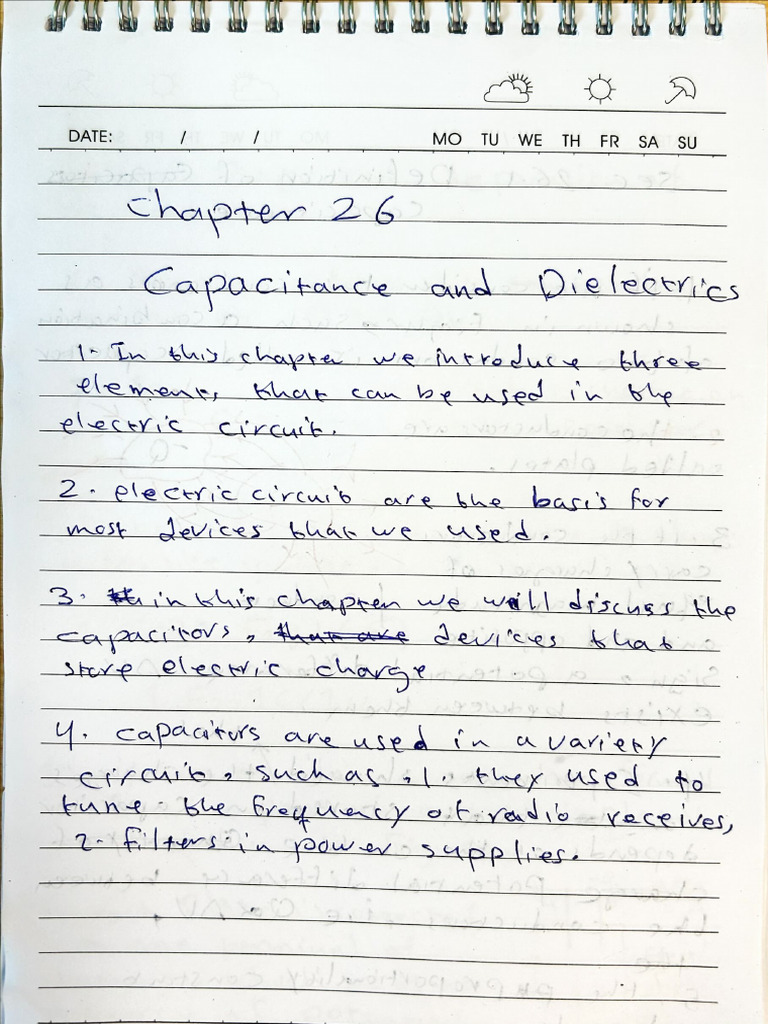 DATE: / / MO TU WE TH FR SA SU
Chapter 26
Capacitance and Dielectrics
1. In this chapter we introduce three
elements that can be used in the
electric circuit.
2. electric circuits are the basis for
most devices that we used.
3. in this chapter we will discuss the
capacitors, that are devices that
store electric charge
4. capacitors are used in a variety
circuits, such as, 1. they used to
tune the frequency of radio receives,
2. filters in power supplies.